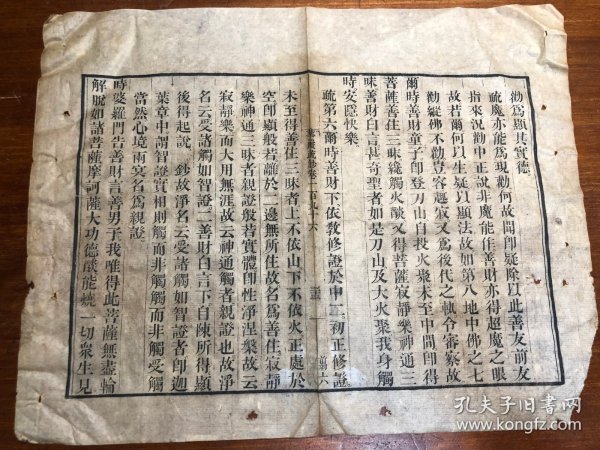 勸為顯其實德
疏魔亦能為現勸何故聞即疑除以此善友前友
指來況勸中正說非魔能作善財亦得超魔之眼
故若爾何以生疑以顯法故如第八地中佛之七
勸縱佛不勸豈容趣寂又為後代之軌令審察故
爾時善財童子即登刀山自投火聚未至中間即得
菩薩善住三昧纔觸火燄又得菩薩寂靜樂神通三
昧善財白言甚奇聖者如是刀山及大火聚我身觸
時安隱快樂
疏第六爾時善財下依教修證於中二初正修證
華嚴疏鈔卷一百九十六
未至得善住三昧者上不依山下不依火正處於
空即顯般若離於二邊無所住故名為善住寂靜
樂神通三昧者親證般若實體即性淨涅槃故云
寂靜樂而大用無涯故云神通觸者親證也故淨
名云受諸觸如智證二善財白言下自陳所得顯
後得起說 鈔故淨名云受諸觸如智證者即迦
葉章中謂智證實相則觸而非觸觸而非觸受觸
當然心境兩冥名為親證
時婆羅門告善財言善男子我唯得此菩薩無盡輪
解脫如諸菩薩摩訶薩大功德燄能燒一切眾生見
孔夫子旧书网
www.kongfz.com